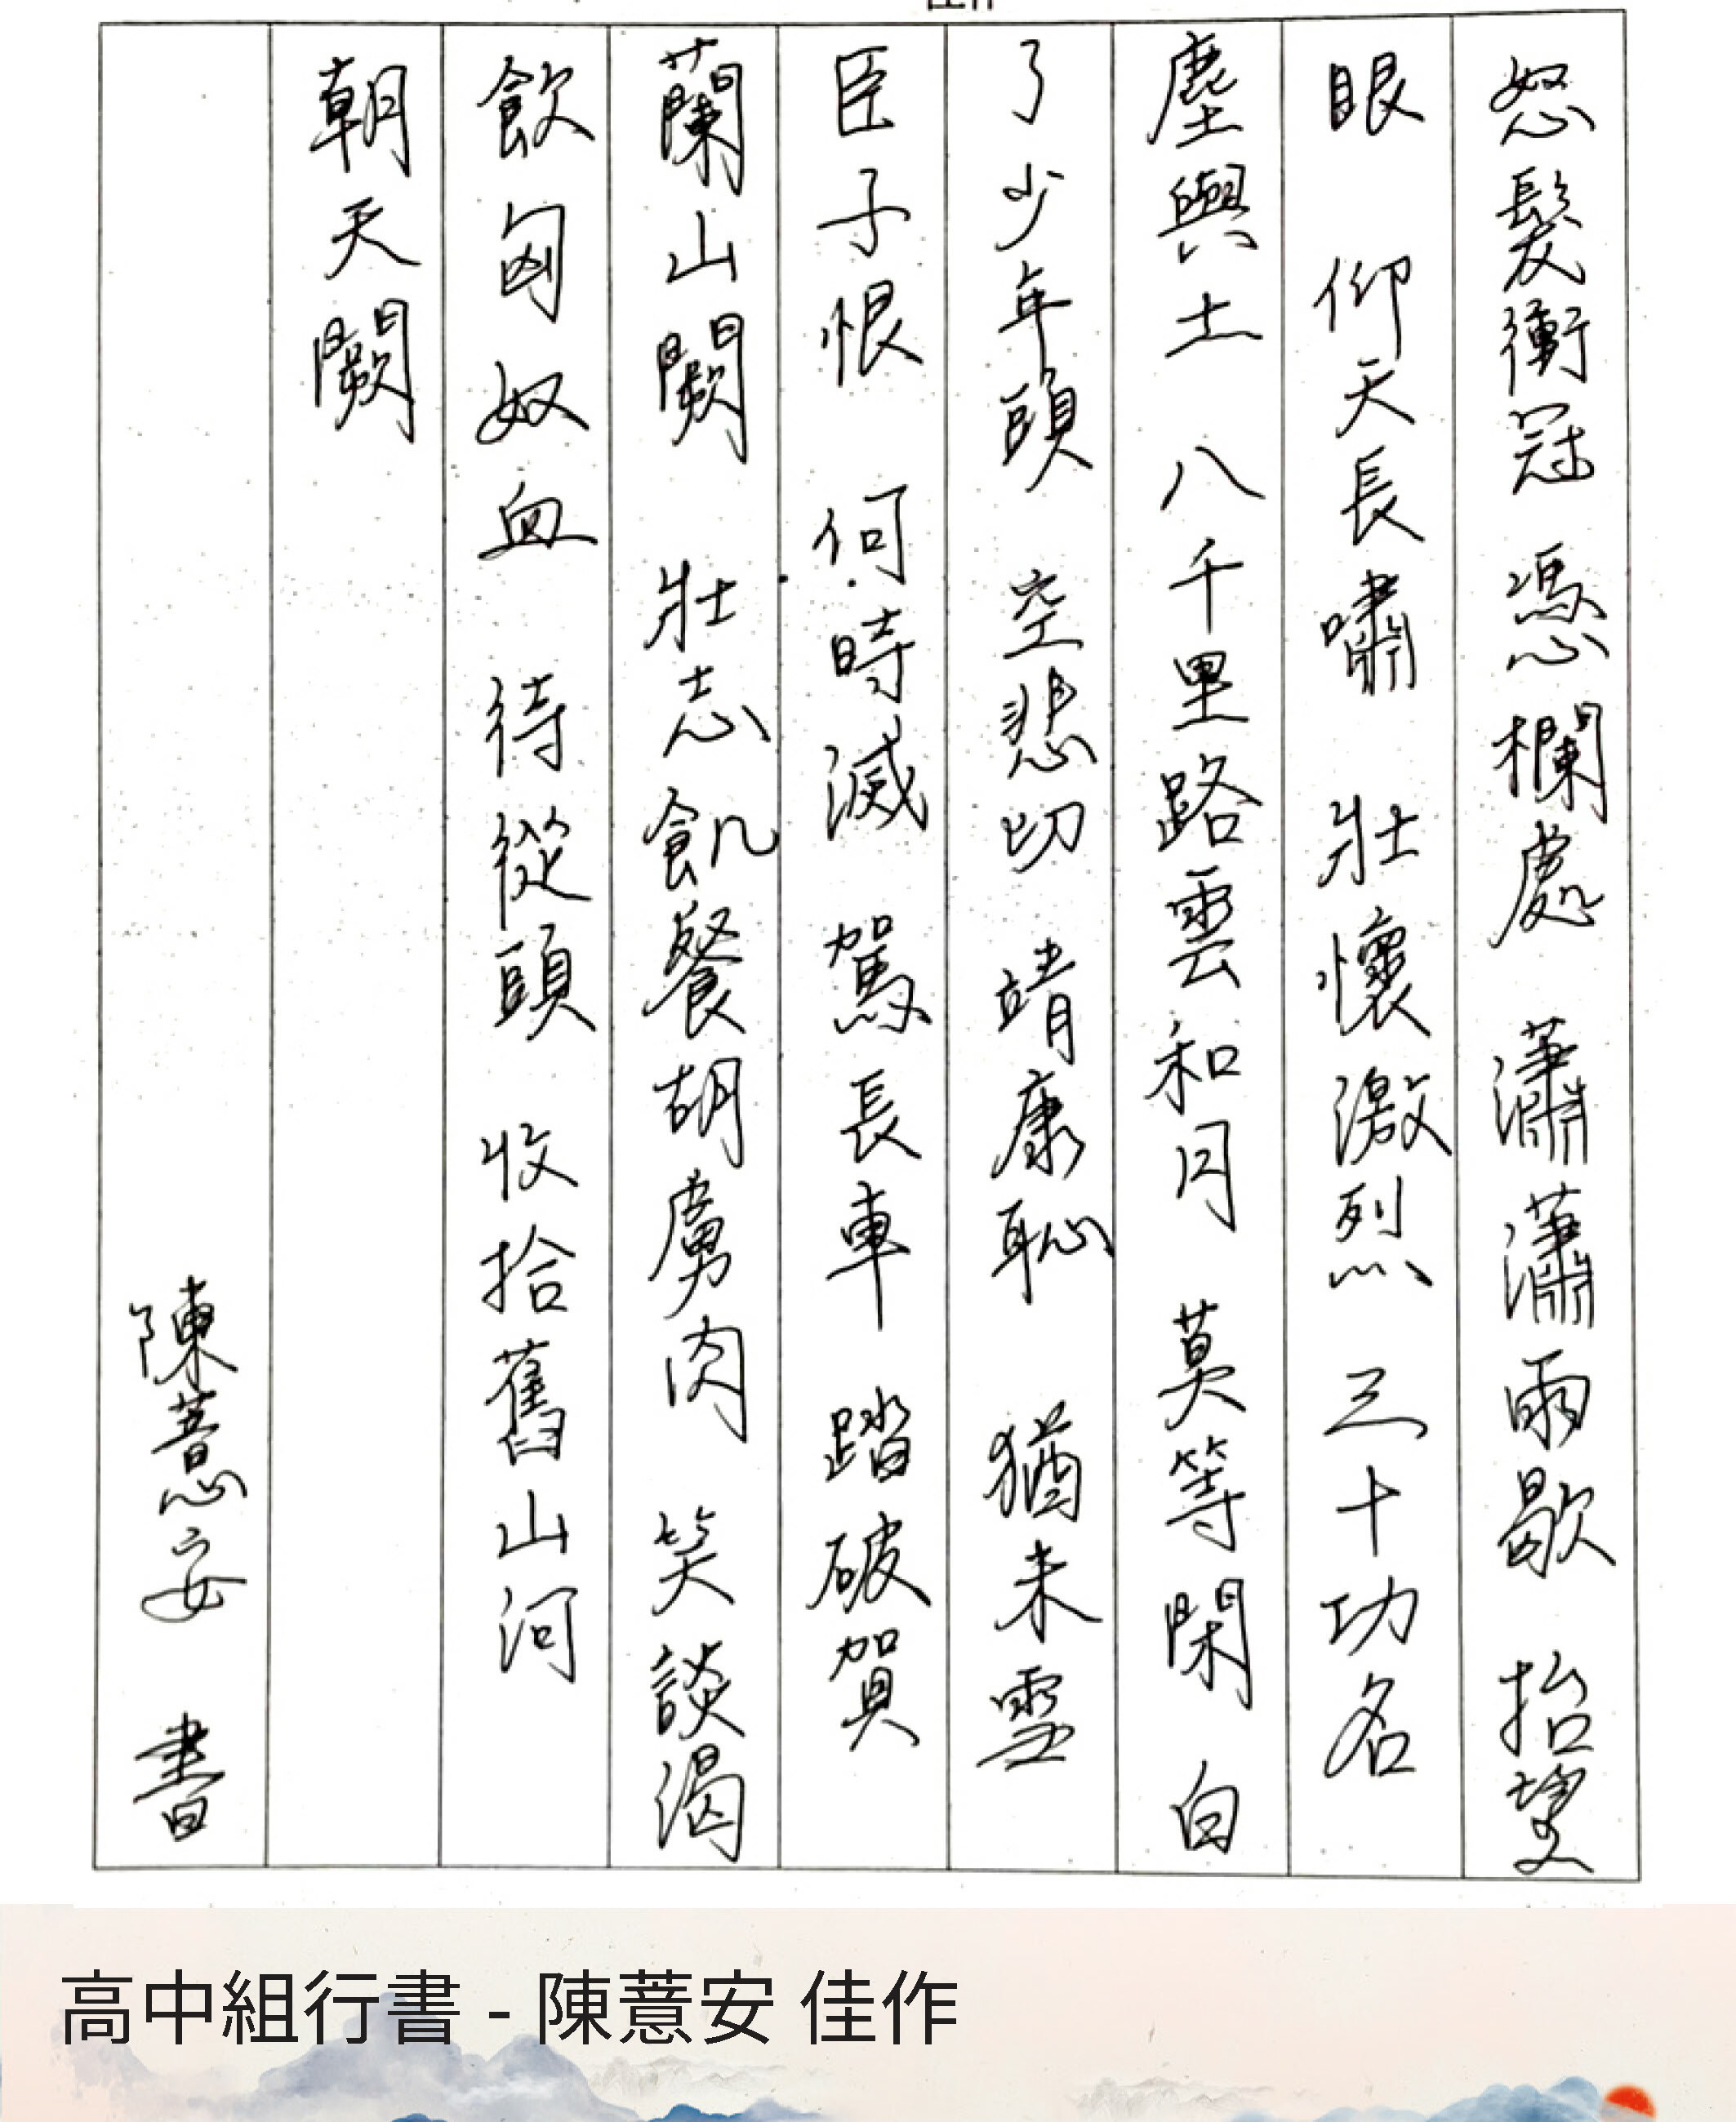 怒髮衝冠 憑欄處 瀟瀟雨歇 抬望
眼 仰天長嘯 壯懷激烈 三十功名
塵與土 八千里路雲和月 莫等閑 白
了少年頭 空悲切 靖康恥 猶未雪
臣子恨 何時滅 駕長車 踏破賀
蘭山闕 壯志飢餐胡虜肉 笑談渴
飲匈奴血 待從頭 收拾舊山河
朝天闕
陳薏安 書
高中組行書 - 陳薏安 佳作